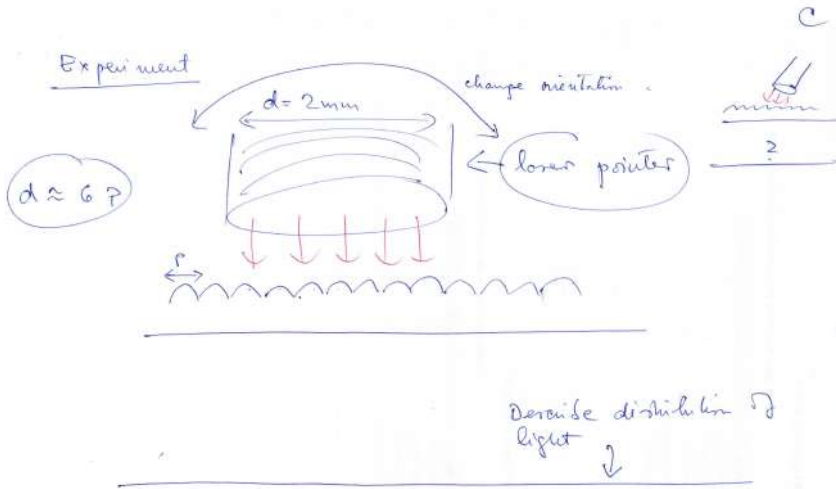 C
Experiment
change orientation.
d = 2mm
laser pointer
?
d ≈ 6 ?
Describe distribution of
light